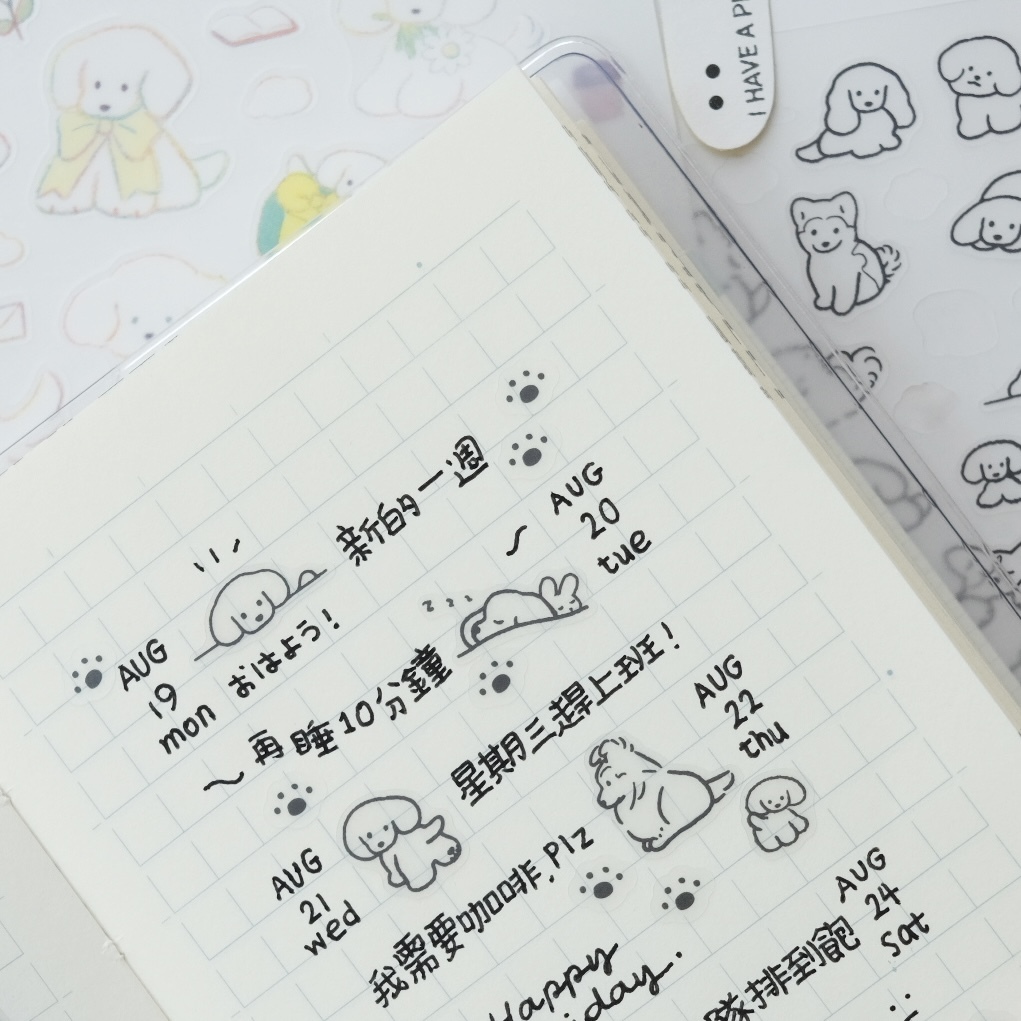 I HAVE A
新的一週
AUG
19
mon
おはよう!
AUG
20
tue
z z z z
～再睡10分鐘～
AUG
21
wed
星期三趕上班!
AUG
22
thu
我需要咖啡,Plz
Happy
AUG
24
sat
隊排到飽